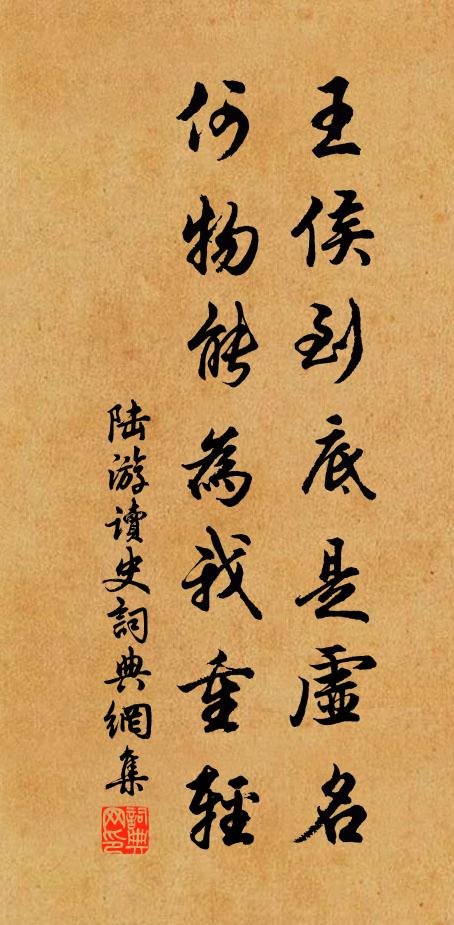 王侯到底是虛名
何物能為我重輕
陆游讀史詞典網集
詞典網印